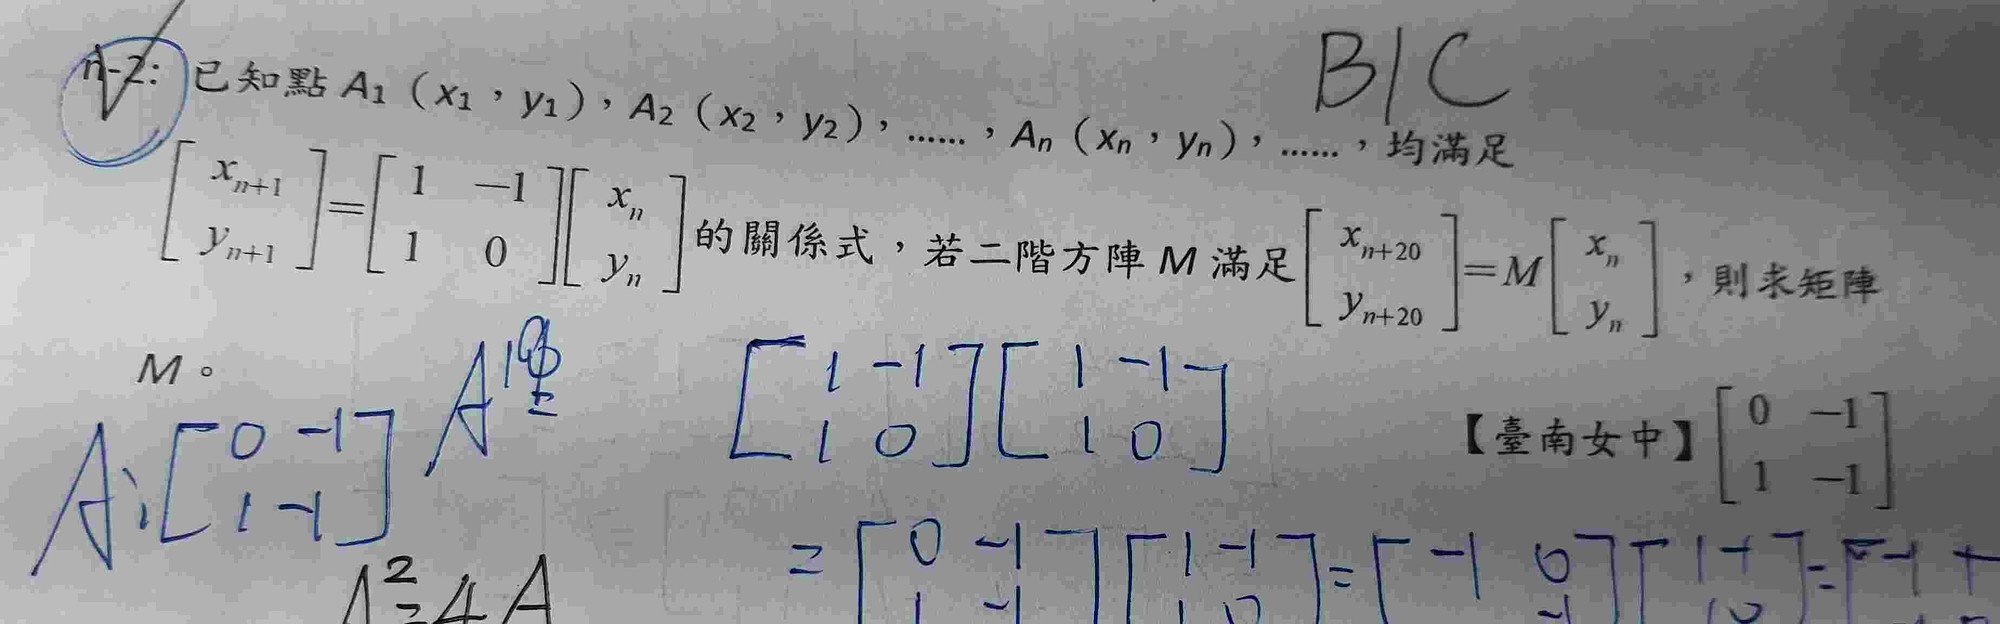 n-2: 已知點 A₁（x₁，y₁），A₂（x₂，y₂），……，Aₙ（xₙ，yₙ），……，均滿足
B/C
[xₙ₊₁ yₙ₊₁] = [1 −1 1 0][xₙ yₙ] 的關係式，若二階方陣 M 滿足 [xₙ₊₂₀ yₙ₊₂₀] = M [xₙ yₙ]，則求矩陣
M。
【臺南女中】[0 −1 1 −1]
A: [0 -1 1 -1]
[1 -1 1 0][1 -1 1 0]
= [0 -1 1 -1][1 -1 1 0] = [-1 0 -1][1